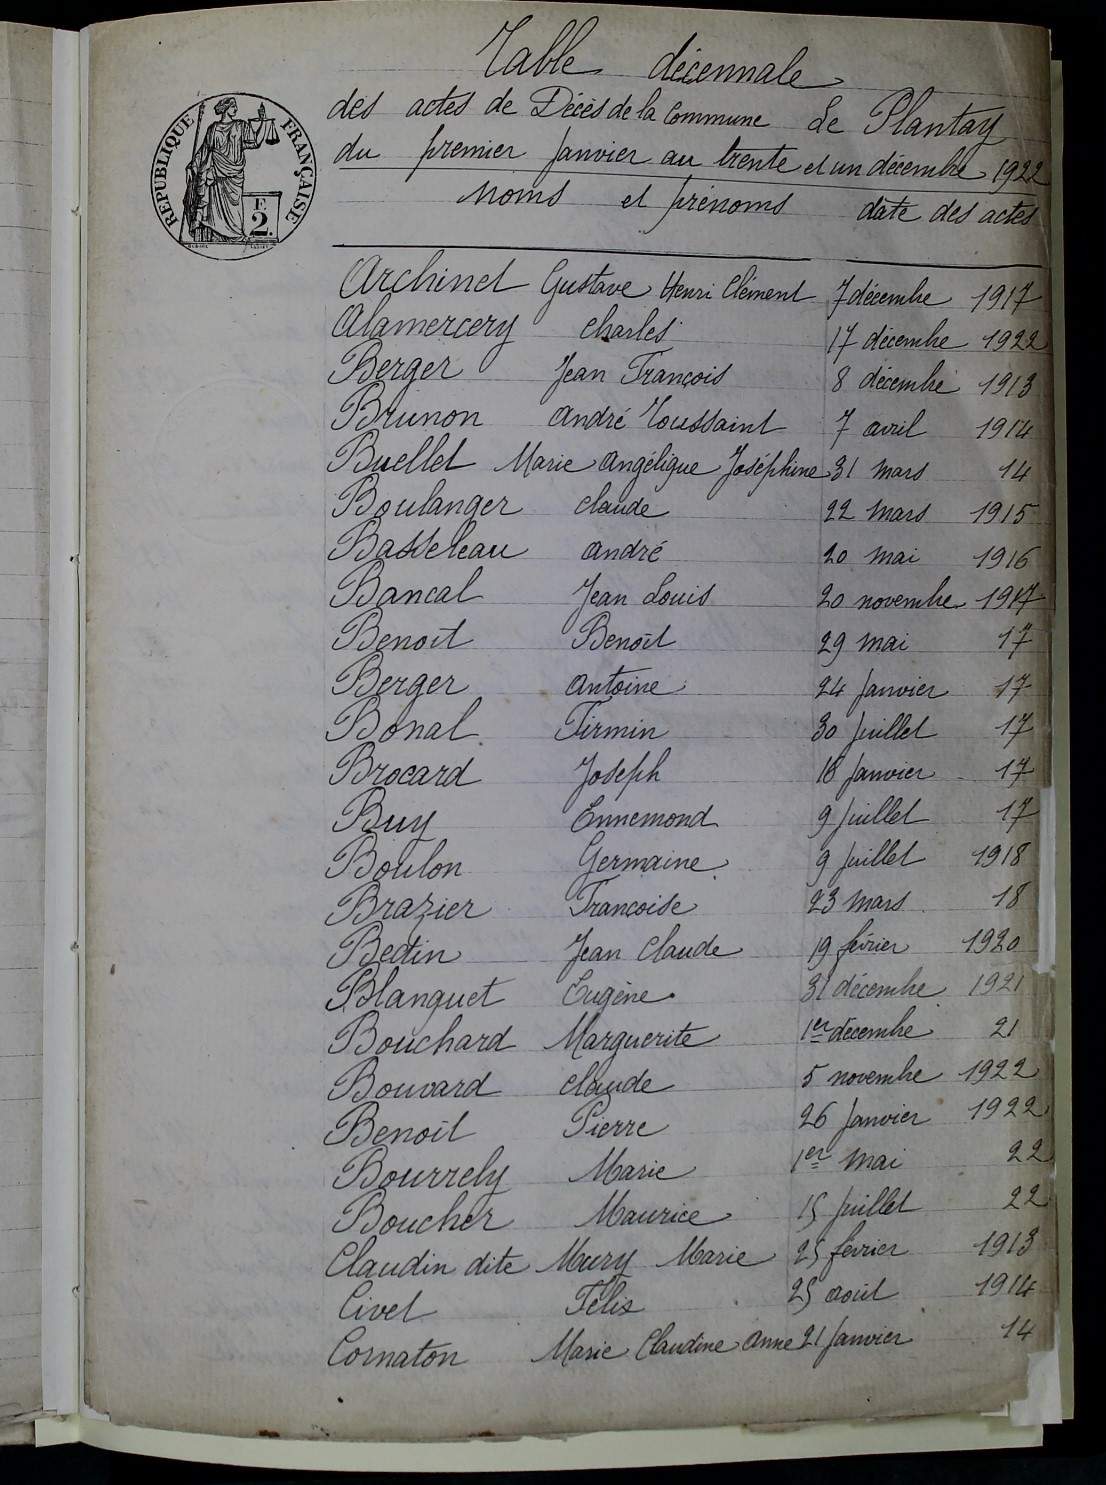 Table décennale
des actes de Décès de la Commune de Plantay
du premier janvier au trente et un décembre 1922
Noms et prénoms date des actes
RÉPUBLIQUE FRANÇAISE
F.
2.
Archinet Gustave Henri Clément 7 décembre 1917
Alamercery Charles 17 décembre 1922
Berger Jean François 8 décembre 1913
Brunon André Toussaint 7 avril 1914
Buellet Marie Angélique Joséphine 31 mars 14
Boulanger Claude 22 mars 1915
Basseteau André 20 mai 1916
Bancal Jean Louis 20 novembre 1917
Benoit Benoît 29 mai 17
Berger Antoine 24 janvier 17
Bonal Firmin 30 juillet 17
Brocard Joseph 16 janvier 17
Buy Ennemond 9 juillet 17
Boulon Germaine 9 juillet 1918
Brazier Francoise 23 mars 18
Bedin Jean Claude 19 février 1920
Blanquet Eugène 31 décembre 1921
Bouchard Marguerite 1er décembre 21
Bouvard Claude 5 novembre 1922
Benoit Pierre 26 janvier 1922
Bourrely Marie 1er mai 22
Boucher Maurice 15 juillet 22
Claudin dite Mury Marie 25 février 1913
Civet Félix 25 août 1914
Cornaton Marie Claudine Anne 21 janvier 14